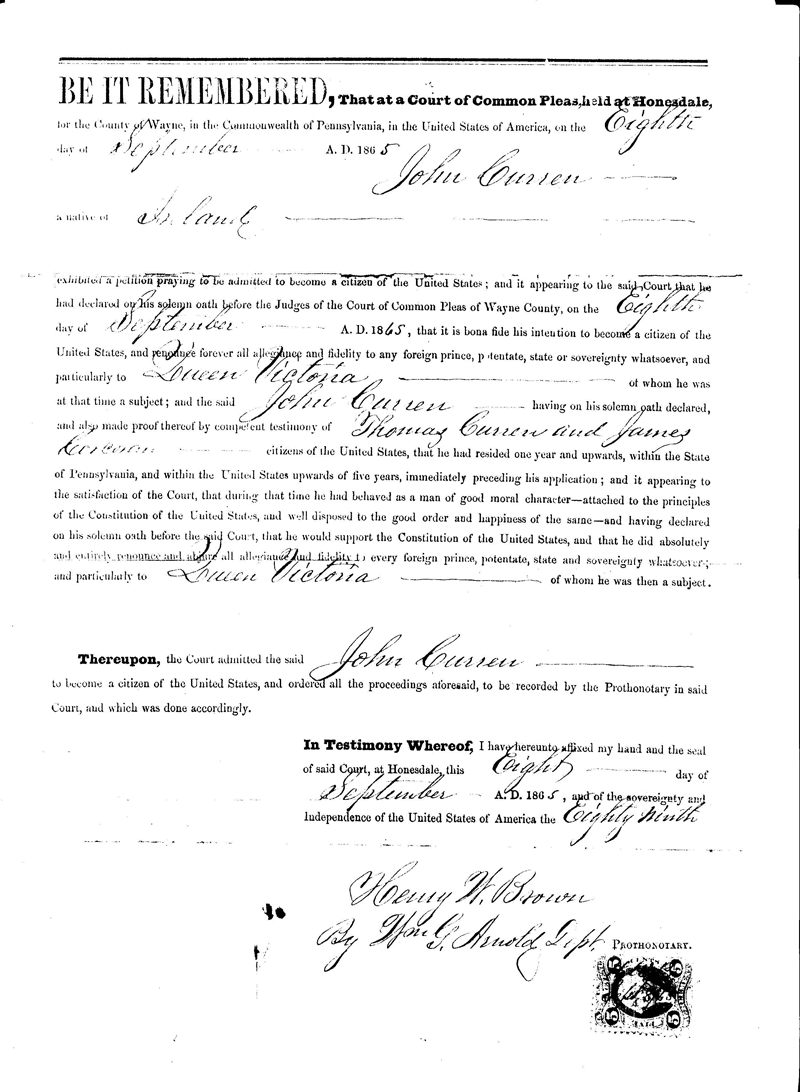 BE IT REMEMBERED, That at a Court of Common Pleas, held at Honesdale,
for the County of Wayne, in the Commonwealth of Pennsylvania, in the United States of America, on the Eighth
day of September A. D. 1865
John Curren
a native of Ireland
exhibited a petition praying to be admitted to become a citizen of the United States; and it appearing to the said Court that he
had declared on his solemn oath before the Judges of the Court of Common Pleas of Wayne County, on the Eighth
day of September A. D. 1865, that it is bona fide his intention to become a citizen of the
United States, and renounce forever all allegiance and fidelity to any foreign prince, potentate, state or sovereignty whatsoever, and
particularly to Queen Victoria of whom he was
at that time a subject; and the said John Curren having on his solemn oath declared,
and also made proof thereof by competent testimony of Thomas Curren and James
Corcoran citizens of the United States, that he had resided one year and upwards, within the State
of Pennsylvania, and within the United States upwards of five years, immediately preceding his application; and it appearing to
the satisfaction of the Court, that during that time he had behaved as a man of good moral character—attached to the principles
of the Constitution of the United States, and well disposed to the good order and happiness of the same—and having declared
on his solemn oath before the said Court, that he would support the Constitution of the United States, and that he did absolutely
and entirely renounce and abjure all allegiance and fidelity to every foreign prince, potentate, state and sovereignty whatsoever;
and particularly to Queen Victoria of whom he was then a subject.
Thereupon, the Court admitted the said John Curren
to become a citizen of the United States, and ordered all the proceedings aforesaid, to be recorded by the Prothonotary in said
Court, and which was done accordingly.
In Testimony Whereof, I have hereunto affixed my hand and the seal
of said Court, at Honesdale, this Eight day of
September A. D. 1865, and of the sovereignty and
Independence of the United States of America the Eighty ninth
Henry W. Brown
By Wm G. Arnold Dept. PROTHONOTARY.
5 5
5 5